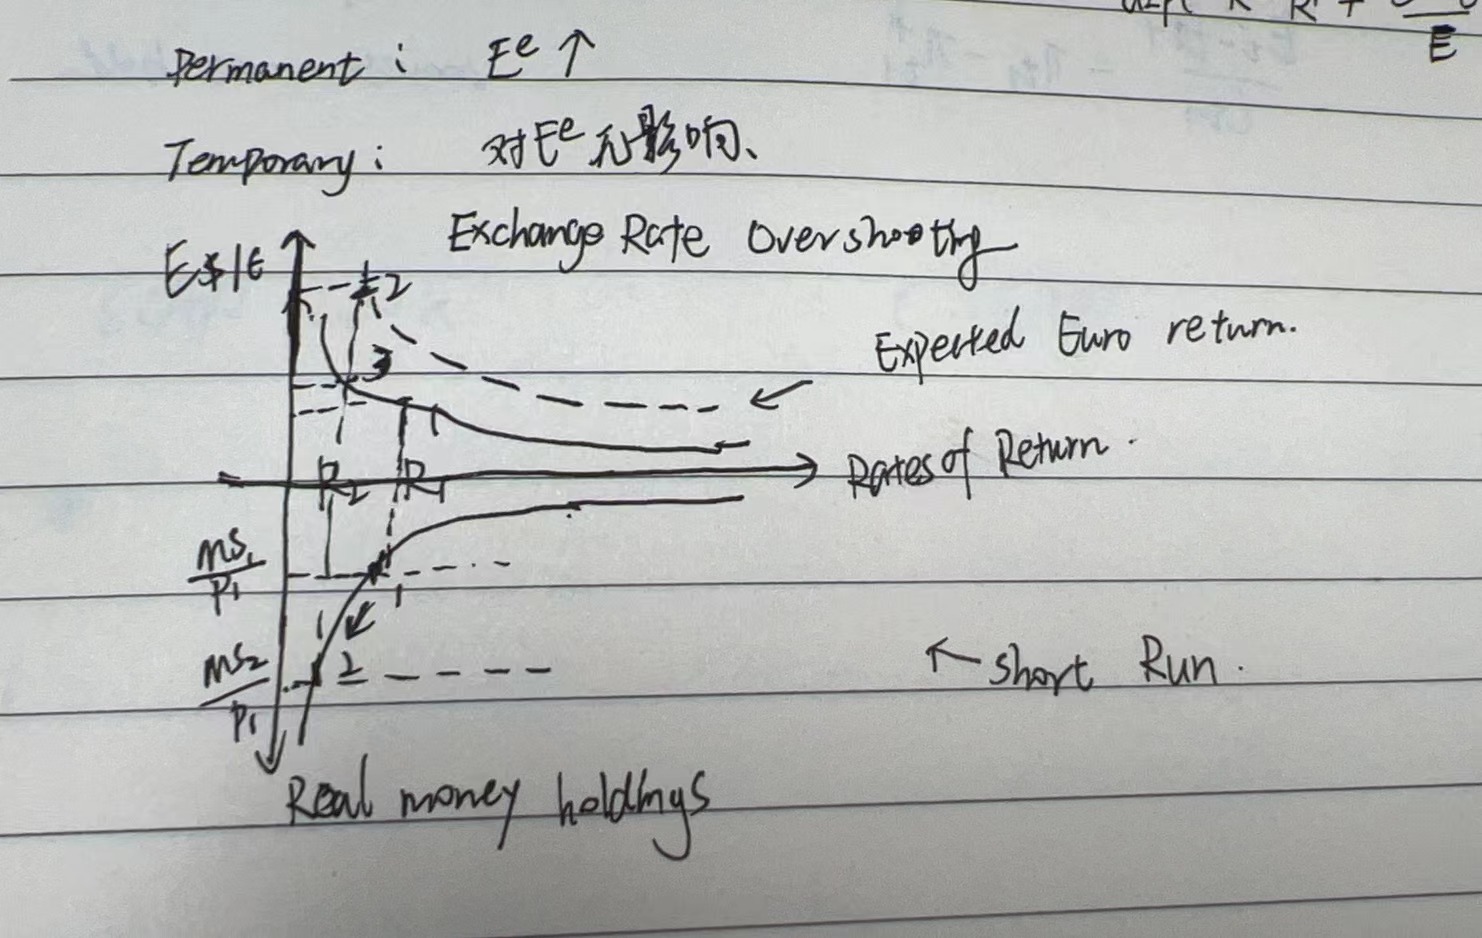 Permanent : E^e ↑
E
Temporary : 对E^e 无影响、
Exchange Rate Overshooting
E$/€
2
3
Expected Euro return.
←
1
R2 R1
Rates of Return.
MS1/P1
1
MS2/P1
2
← Short Run.
Real money holdings